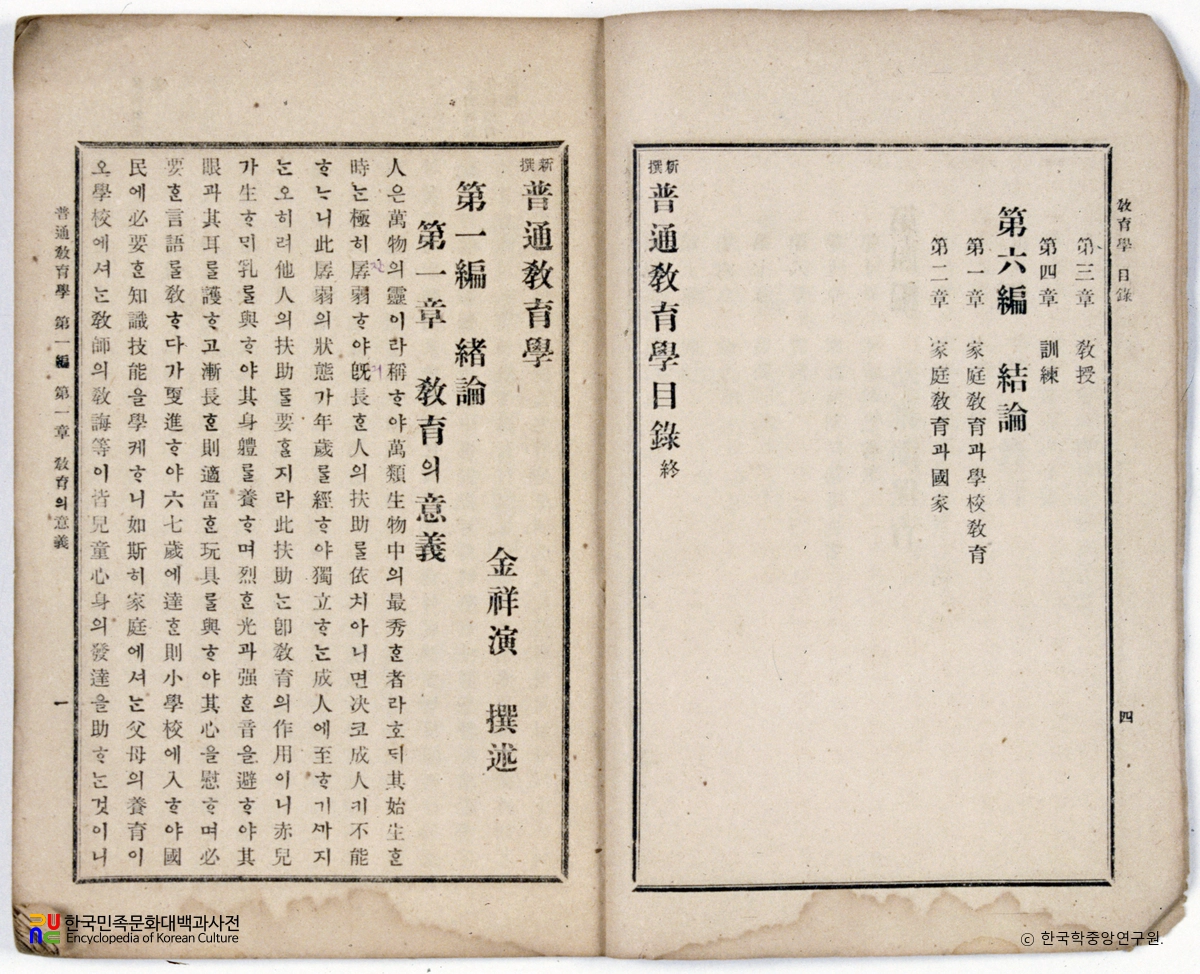 敎育學 目錄
四
第三章 敎授
第四章 訓練
第六編 結論
第一章 家庭敎育과學校敎育
第二章 家庭敎育과國家
新撰 普通敎育學目錄 終
新撰 普通敎育學
金祥演 撰述
第一編 緖論
第一章 敎育의意義
人은萬物의靈이라稱ᄒᆞ야萬類生物中의最秀ᄒᆞᆫ者라호ᄃᆡ其始生ᄒᆞᆫ
時ᄂᆞᆫ極히孱弱ᄒᆞ야旣長ᄒᆞᆫ人의扶助ᄅᆞᆯ依치아니면决코成人키不能
ᄒᆞᄂᆞ니此孱弱의狀態가年歲ᄅᆞᆯ經ᄒᆞ야獨立ᄒᆞᄂᆞᆫ成人에至ᄒᆞ기ᄭᅡ지
ᄂᆞᆫ오히려他人의扶助ᄅᆞᆯ要ᄒᆞᆯ지라此扶助ᄂᆞᆫ卽敎育의作用이니赤兒
가生ᄒᆞᄆᆡ乳ᄅᆞᆯ與ᄒᆞ야其身軆ᄅᆞᆯ養ᄒᆞ며烈ᄒᆞᆫ光과强ᄒᆞᆫ音을避ᄒᆞ야其
眼과其耳ᄅᆞᆯ護ᄒᆞ고漸長ᄒᆞᆫ則適當ᄒᆞᆫ玩具ᄅᆞᆯ與ᄒᆞ야其心을慰ᄒᆞ며必
要ᄒᆞᆫ言語ᄅᆞᆯ敎ᄒᆞ다가更進ᄒᆞ야六七歲에達ᄒᆞᆫ則小學校에入ᄒᆞ야國
民에必要ᄒᆞᆫ知識技能을學케ᄒᆞ니如斯히家庭에셔ᄂᆞᆫ父母의養育이
오學校에셔ᄂᆞᆫ敎師의敎誨等이皆兒童心身의發達을助ᄒᆞᄂᆞᆫ것이니
普通敎育學 第一編 第一章 敎育의意義
一
한국민족문화대백과사전
Encyclopedia of Korean Culture
ⓒ 한국학중앙연구원.